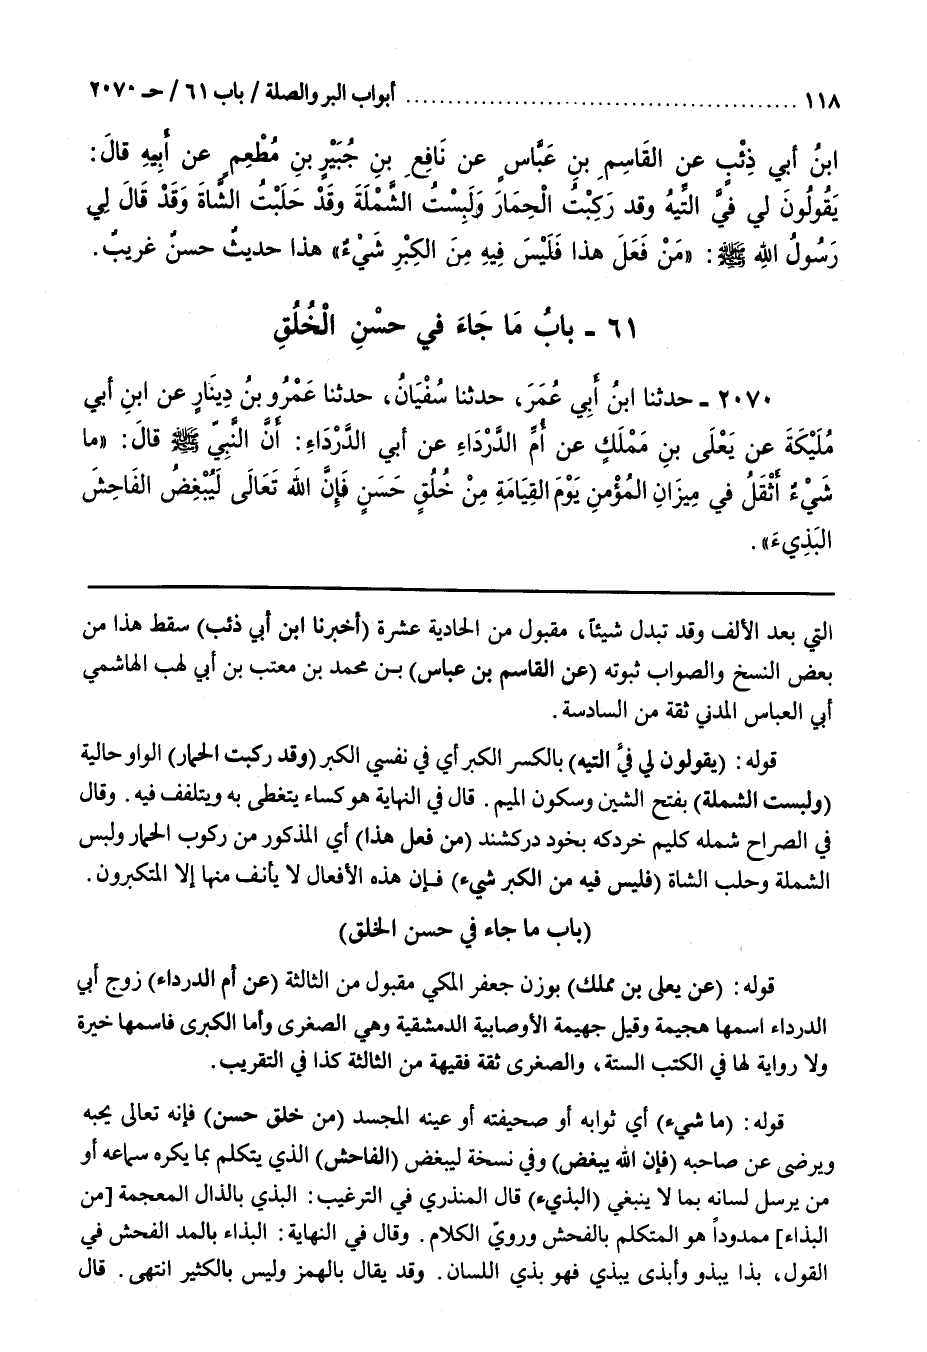 ١١٨ ........................................ أبواب البر والصلة / باب ٦١ / حـ ٢٠٧٠
ابنُ أبي ذِئْبٍ عن القَاسِمِ بنِ عَبَّاسٍ عن نَافِعِ بنِ جُبَيْرِ بنِ مُطْعِمٍ عن أَبِيهِ قالَ:
يَقُولُونَ لي فيَّ التِّيهُ وقد رَكِبْتُ الْحِمَارَ وَلَبِسْتُ الشَّمْلَةَ وقَدْ حَلَبْتُ الشَّاةَ وَقَدْ قَالَ لِي
رَسُولُ اللهِ ﷺ: «مَنْ فَعَلَ هذا فَلَيْسَ فِيهِ مِنَ الكِبْرِ شَيْءٌ» هذا حديثٌ حسنٌ غريبٌ.
٦١ - بابُ مَا جَاءَ في حسْنِ الْخُلُقِ
٢٠٧٠ - حدثنا ابنُ أَبِي عُمَرَ، حدثنا سُفْيَانُ، حدثنا عَمْرُو بنُ دِينَارٍ عن ابنِ أبي
مُلَيْكَةَ عن يَعْلَى بنِ مَمْلَكٍ عن أُمِّ الدَّرْدَاءِ عن أبي الدَّرْدَاءِ: أَنَّ النَّبيَّ ﷺ قالَ: «ما
شَيْءٌ أَثْقَلُ في مِيزَانِ المُؤْمنِ يَوْمَ القِيَامَةِ مِنْ خُلُقٍ حَسَنٍ فَإِنَّ اللهَ تَعَالَى لَيُبْغِضُ الفَاحِشَ
البَذِيءَ».
التي بعد الألف وقد تبدل شيئاً، مقبول من الحادية عشرة (أخبرنا ابن أبي ذئب) سقط هذا من
بعض النسخ والصواب ثبوته (عن القاسم بن عباس) بن محمد بن معتب بن أبي لهب الهاشمي
أبي العباس المدني ثقة من السادسة.
قوله: (يقولون لي فيَّ التيه) بالكسر الكبر أي في نفسي الكبر (وقد ركبت الحمار) الواو حالية
(ولبست الشملة) بفتح الشين وسكون الميم. قال في النهاية هو كساء يتغطى به ويتلفف فيه. وقال
في الصراح شمله كليم خردكه بخود دركشند (من فعل هذا) أي المذكور من ركوب الحمار ولبس
الشملة وحلب الشاة (فليس فيه من الكبر شيء) فإن هذه الأفعال لا يأنف منها إلا المتكبرون.
(باب ما جاء في حسن الخلق)
قوله: (عن يعلى بن مملك) بوزن جعفر المكي مقبول من الثالثة (عن أم الدرداء) زوج أبي
الدرداء اسمها هجيمة وقيل جهيمة الأوصابية الدمشقية وهي الصغرى وأما الكبرى فاسمها خيرة
ولا رواية لها في الكتب الستة، والصغرى ثقة فقيهة من الثالثة كذا في التقريب.
قوله: (ما شيء) أي ثوابه أو صحيفته أو عينه المجسد (من خلق حسن) فإنه تعالى يحبه
ويرضى عن صاحبه (فإن الله يبغض) وفي نسخة ليبغض (الفاحش) الذي يتكلم بما يكره سماعه أو
من يرسل لسانه بما لا ينبغي (البذيء) قال المنذري في الترغيب: البذي بالذال المعجمة [من
البذاء] ممدوداً هو المتكلم بالفحش ورويّ الكلام. وقال في النهاية: البذاء بالمد الفحش في
القول، بذا يبذو وأبذى يبذي فهو بذي اللسان. وقد يقال بالهمز وليس بالكثير انتهى. قال